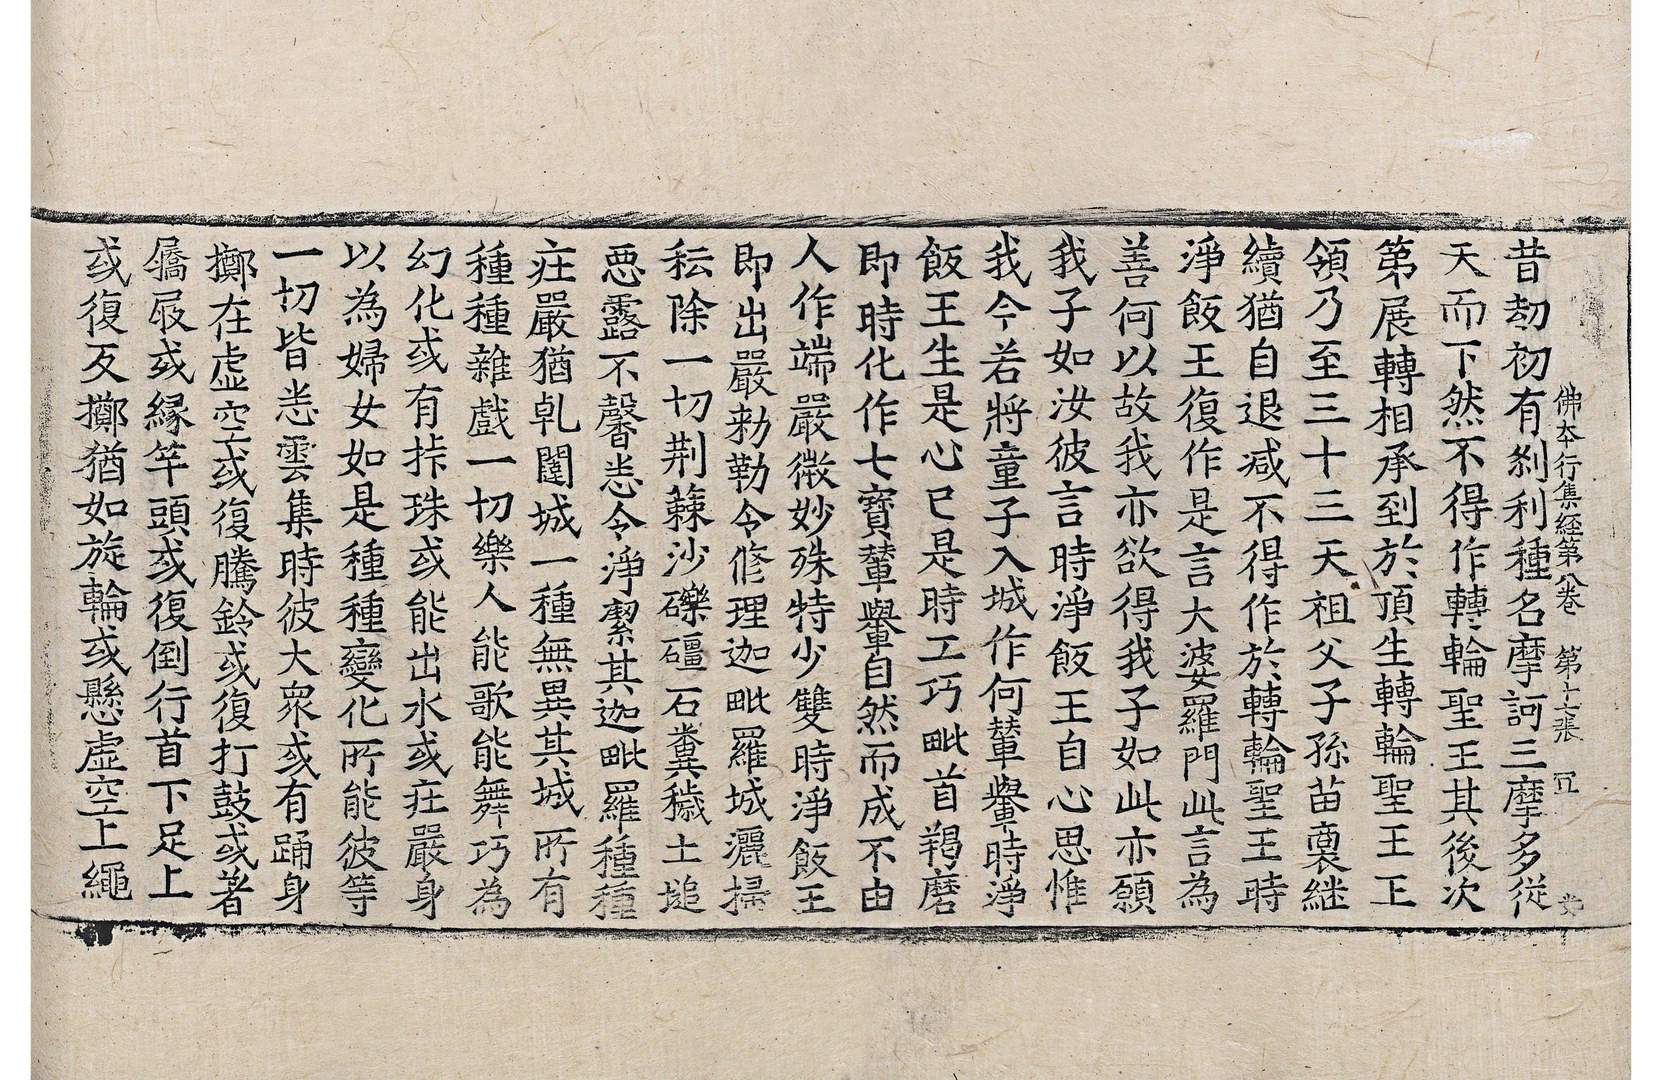 佛本行集經第八卷 第十七張
昔劫初有刹利種名摩訶三摩多從
天而下然不得作轉輪聖王其後次
第展轉相承到於頂生轉輪聖王正
領乃至三十三天祖父子孫苗裔継
續猶自退减不得作於轉輪聖王時
淨飯王復作是言大婆羅門此言為
善何以故我亦欲得我子如此亦願
我子如汝彼言時淨飯王自心思惟
我今若將童子入城作何輦轝時淨
飯王生是心已是時工巧毗首羯磨
即時化作七寶輦轝自然而成不由
人作端嚴微妙殊特少雙時淨飯王
即出嚴勑勒令修理迦毗羅城灑掃
秐除一切荆蕀沙礫礓石糞穢土塠
惡露不馨悉令淨潔其迦毗羅種種
莊嚴猶乹闥城一種無異其城所有
種種雜戲一切樂人能歌能舞巧為
幻化或有挊珠或能出水或莊嚴身
以為婦女如是種種變化所能彼等
一切皆悉雲集時彼大衆或有踊身
擲在虛空或復騰鈴或復打鼓或著
屩屐或緣竿頭或復倒行首下足上
或復反擲猶如旋輪或懸虛空上繩